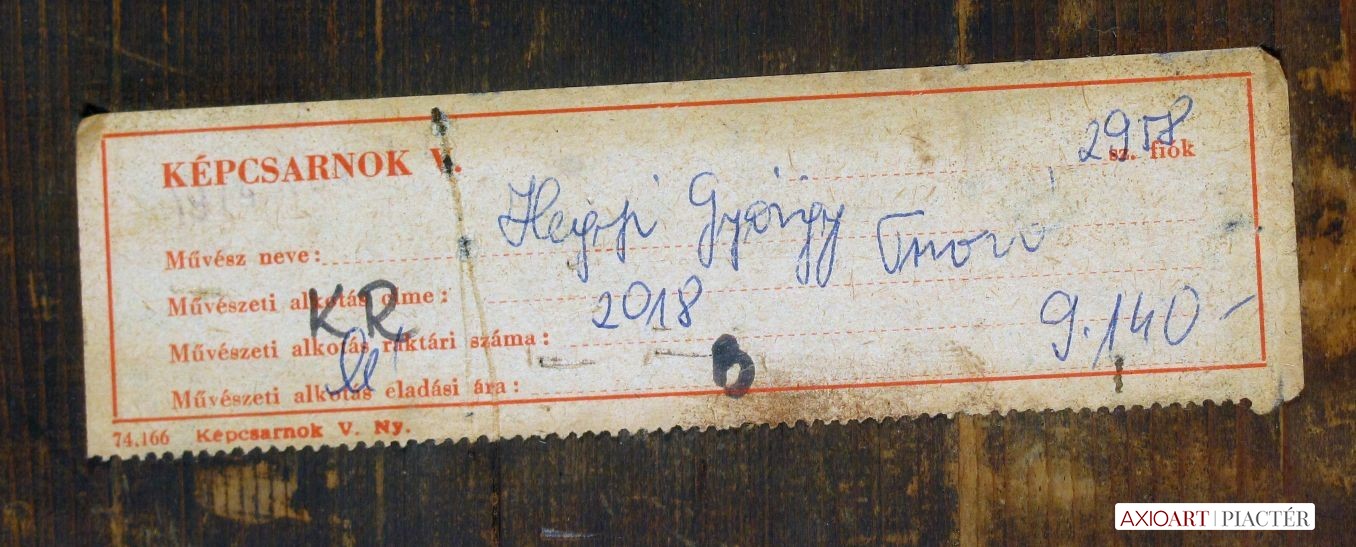 2958
KÉPCSARNOK V. sz. fiók
Művész neve: Hegyi György
Művészeti alkotás címe:
KR 2018
Művészeti alkotás raktári száma: 9.140-
B
Művészeti alkotás eladási ára:
74.166 Képcsarnok V. Ny.
AXIOART | PIACTÉR